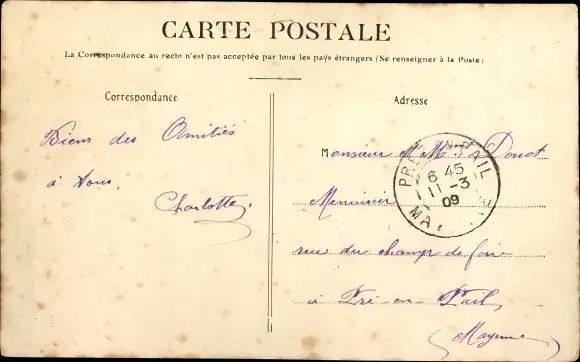 CARTE POSTALE
La Correspondance au recto n'est pas acceptée par tous les pays étrangers (Se renseigner à la Poste)
Correspondance
Adresse
Biens des Amitiés
à tous,
Charlotte.
Monsieur et Mme Douet
Menuisier
rue du champ de foire
à Pré-en-Pail
(Mayenne)
PRÉ-EN-PAIL
6 45
11 -3
09